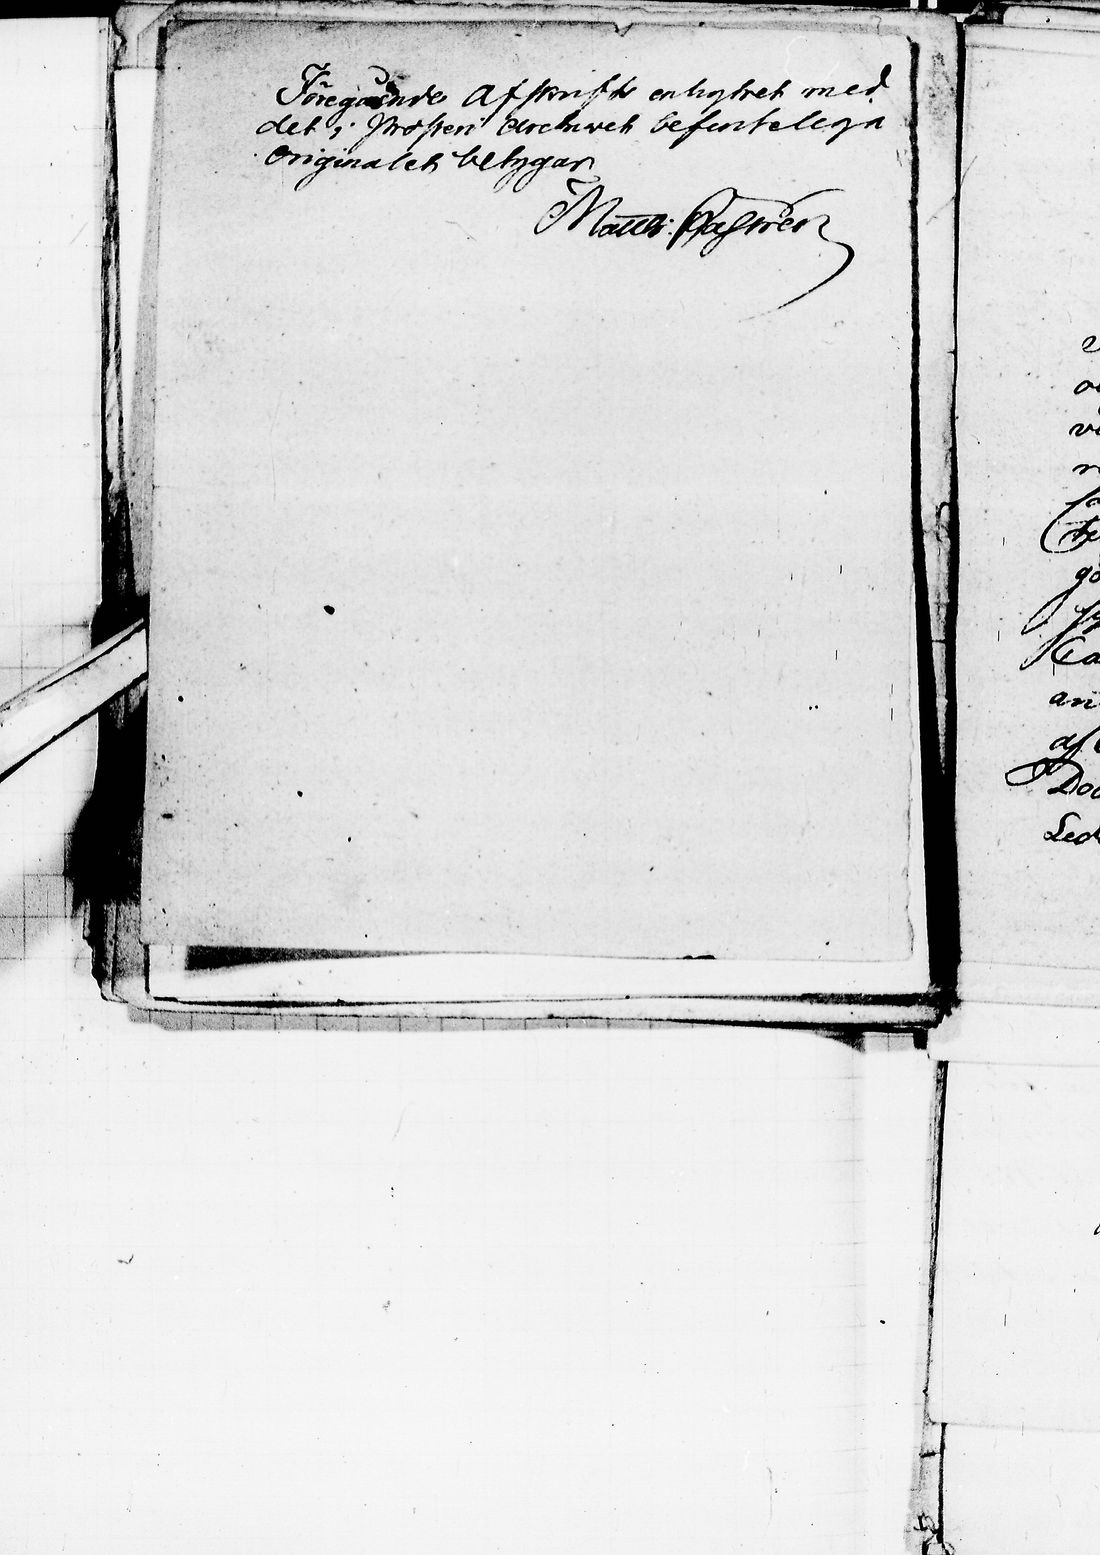 Föregående Afskrifts enlighet med
det i Prosteri Archivet befintelega
Originalet betygar
Matth:
ve
fa
gö
Ca
an
af
Doc
Led